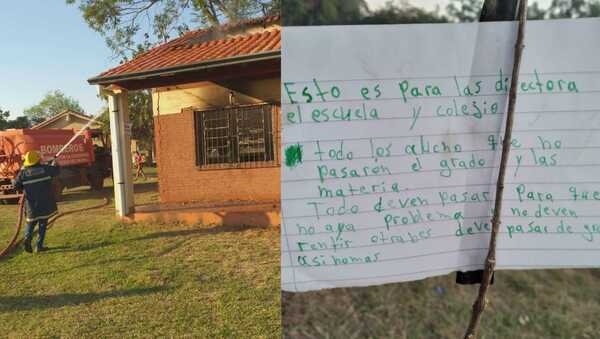 BOMBEROS
Esto es para las directora
el escuela y colejio
todo los alucho que no
pasaron el grado y las
materia.
Todo deven pasar Para que
no aya problema no deven
rentir otrabes deven pasar de gra
asi nomas